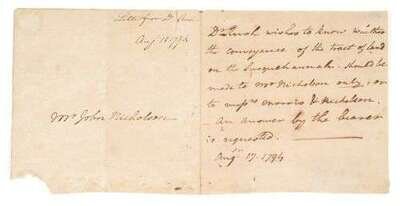 Letter from Dr Rush
Augt 18 1794
Mr John Nicholson
Dr Rush wishes to know whether
the conveyance of the tract of land
on the Susquehannah. should be
made to Mr Nicholson only, or
to Messrs Morris & Nicholson.
An answer by the bearer
is requested.
Augt 17. 1794